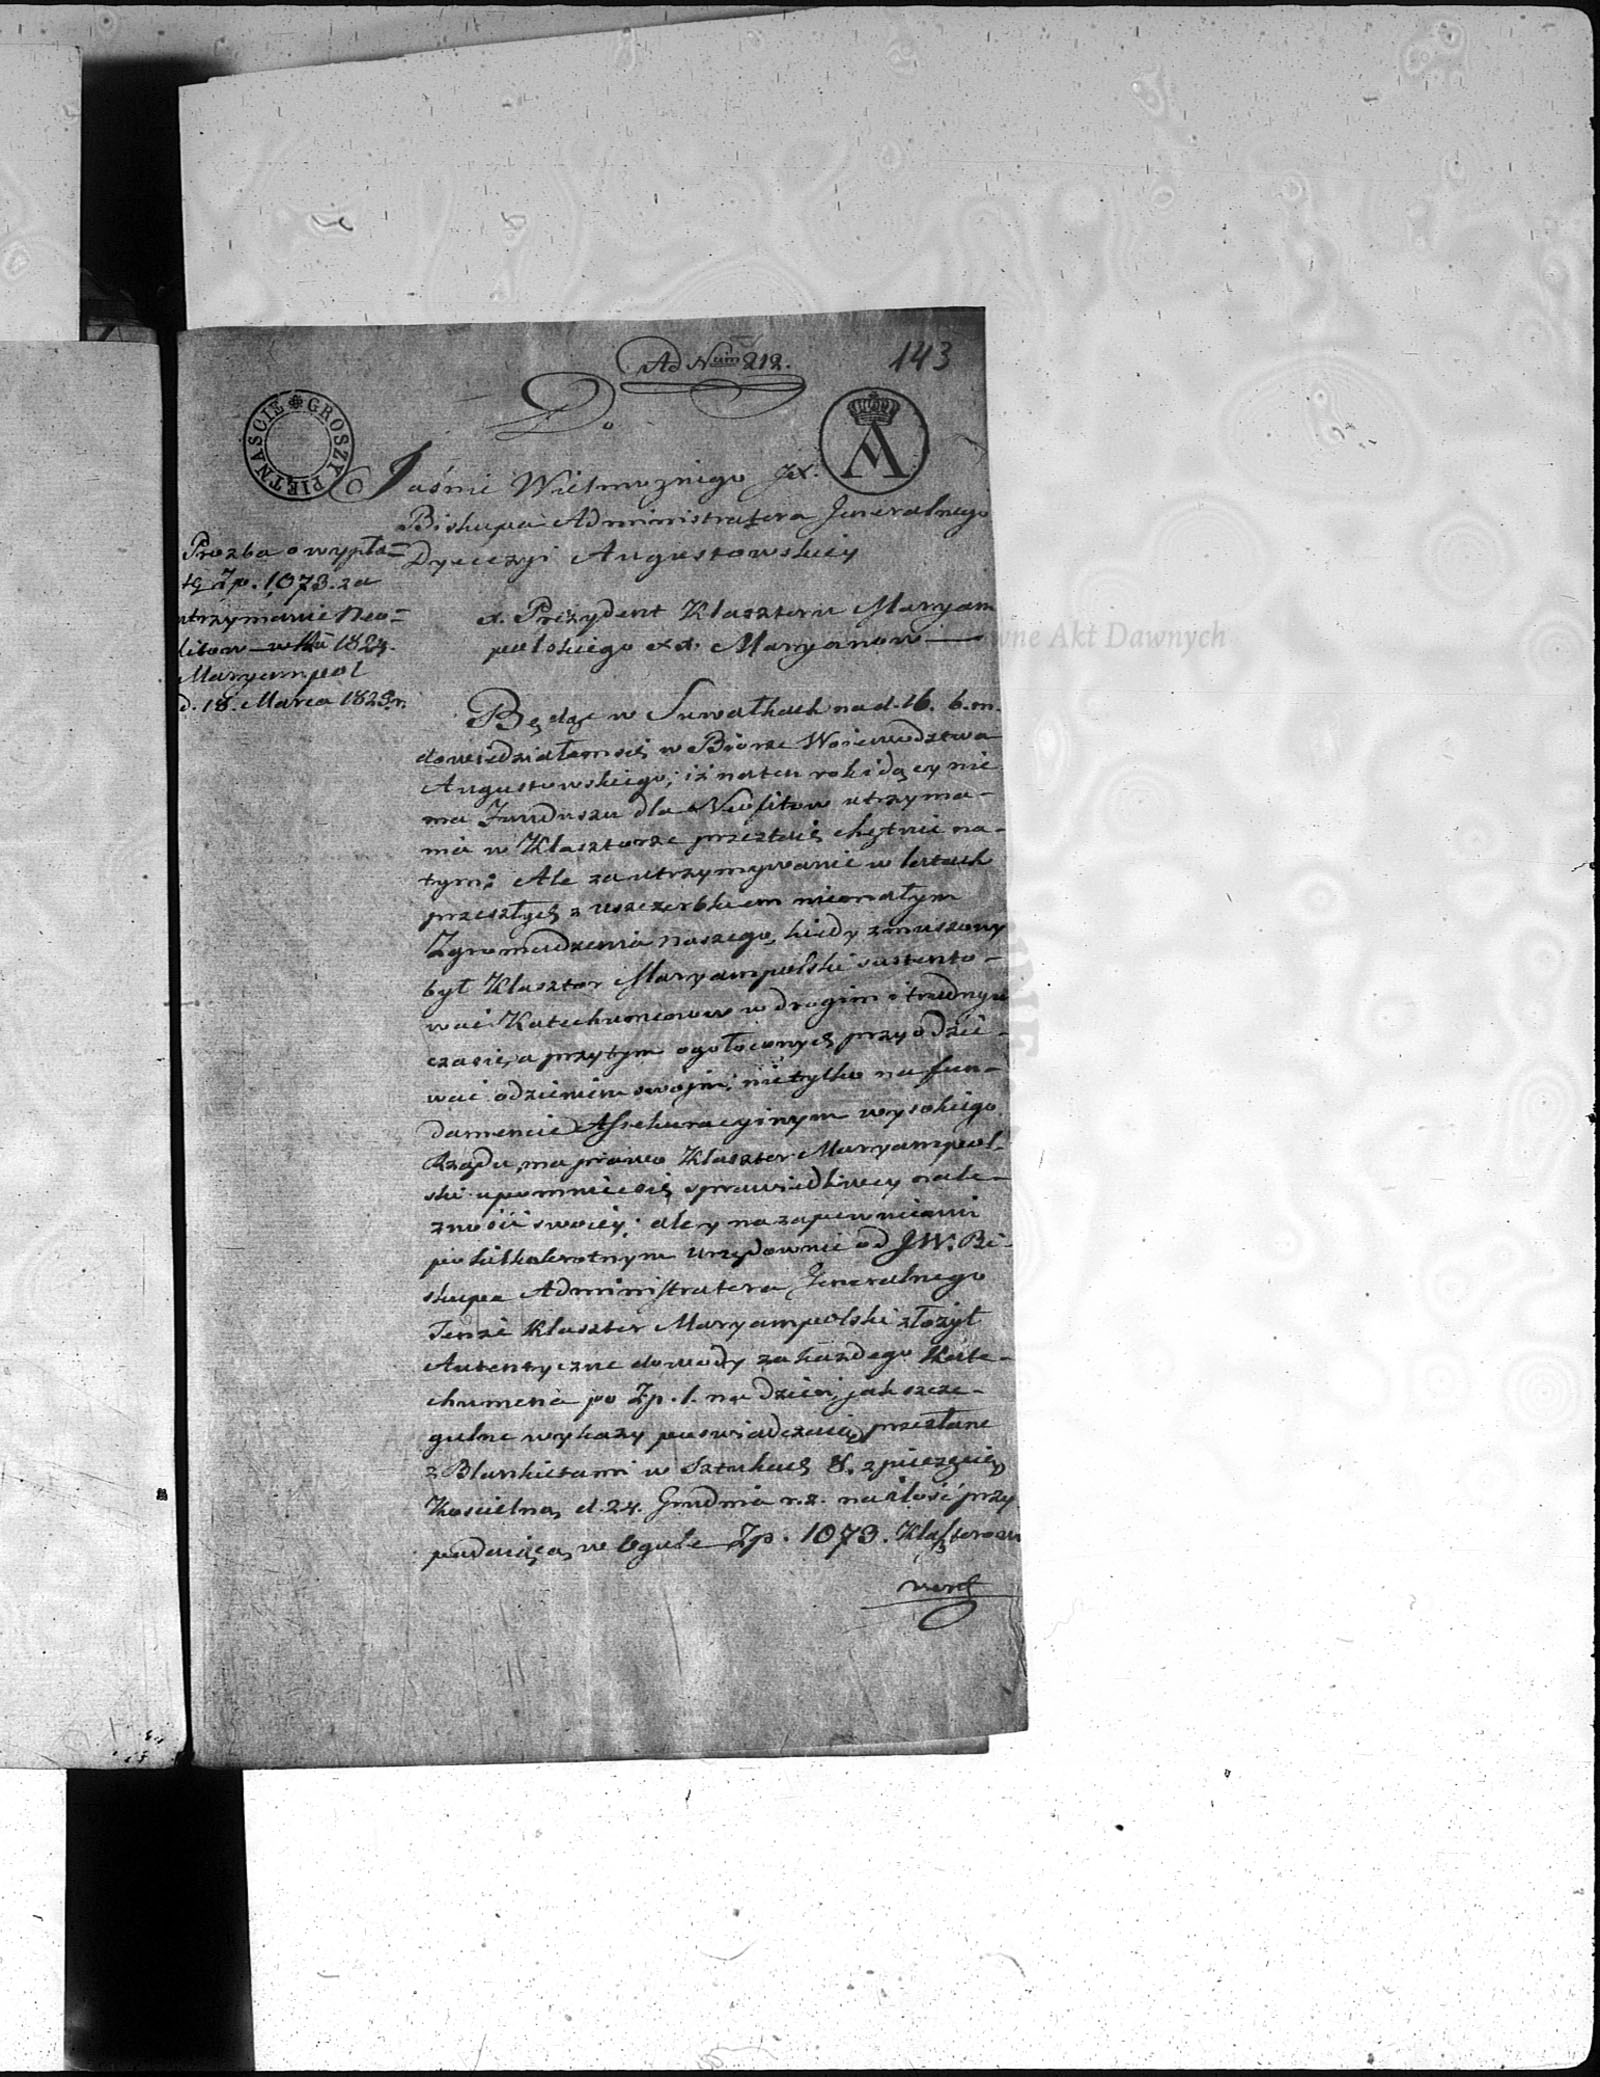 Ad Num 212.
143
GROSZY PIĘTNAŚCIE
Do
Jaśnie Wielmoznego JX.
Biskupa Administratora Jeneralnego
Dyecezyi Augustowskiey
Prozba o wypła=
tę Zp. 1,073. za
utrzymanie Neo=
litow w Ru 1824.
Maryampol
d. 18. Marca 1825 r.
x. Prezydent Klasztoru Maryam
polskiego xx. Maryanow
Będąc w Suwałkach na d. 16. b. m.
dowiedziałem się w Biorze Woiewodztwa
Augustowskiego; iż na ten rok idący nie
ma Funduszu dla Neofitow utrzyma-
nia w Klasztorze przestaię chętnie na-
tym: Ale za utrzymywanie w latach
przeszłych z uszczerbkiem niemałym
Zgromadzenia naszego, kiedy zmuszony
był Klasztor Maryampolski sustento-
wać Katechumenow w drogim i trudnym
czasie, a przytym ogołoconych przyodzie-
wać odzieniem swojm; nie tylko na fun-
damencie Assekuracyinym wysokiego
Rządu, ma prawo Klasztor Maryampol-
ski upomnieć się sprawiedliwey nale-
zności swoiey: ale y na zapewnieniu
po kilkokrotnym urzędownie od JW. Bi-
skupa Administratora Jeneralnego
Tenże Klasztor Maryampolski złożył
Autentyczne dowody za każdego Kate-
chumena po Zp. 1. na dzień, jak szcze-
gulne wykazy poswiadczaią przesłane
z Blankietami w Sztukach 8. z pieczęcią
Koscielną d. 24. Grudnia r. z. na ilość przy
padaiącą w Ogule Zp. 1073. Klasztorowi